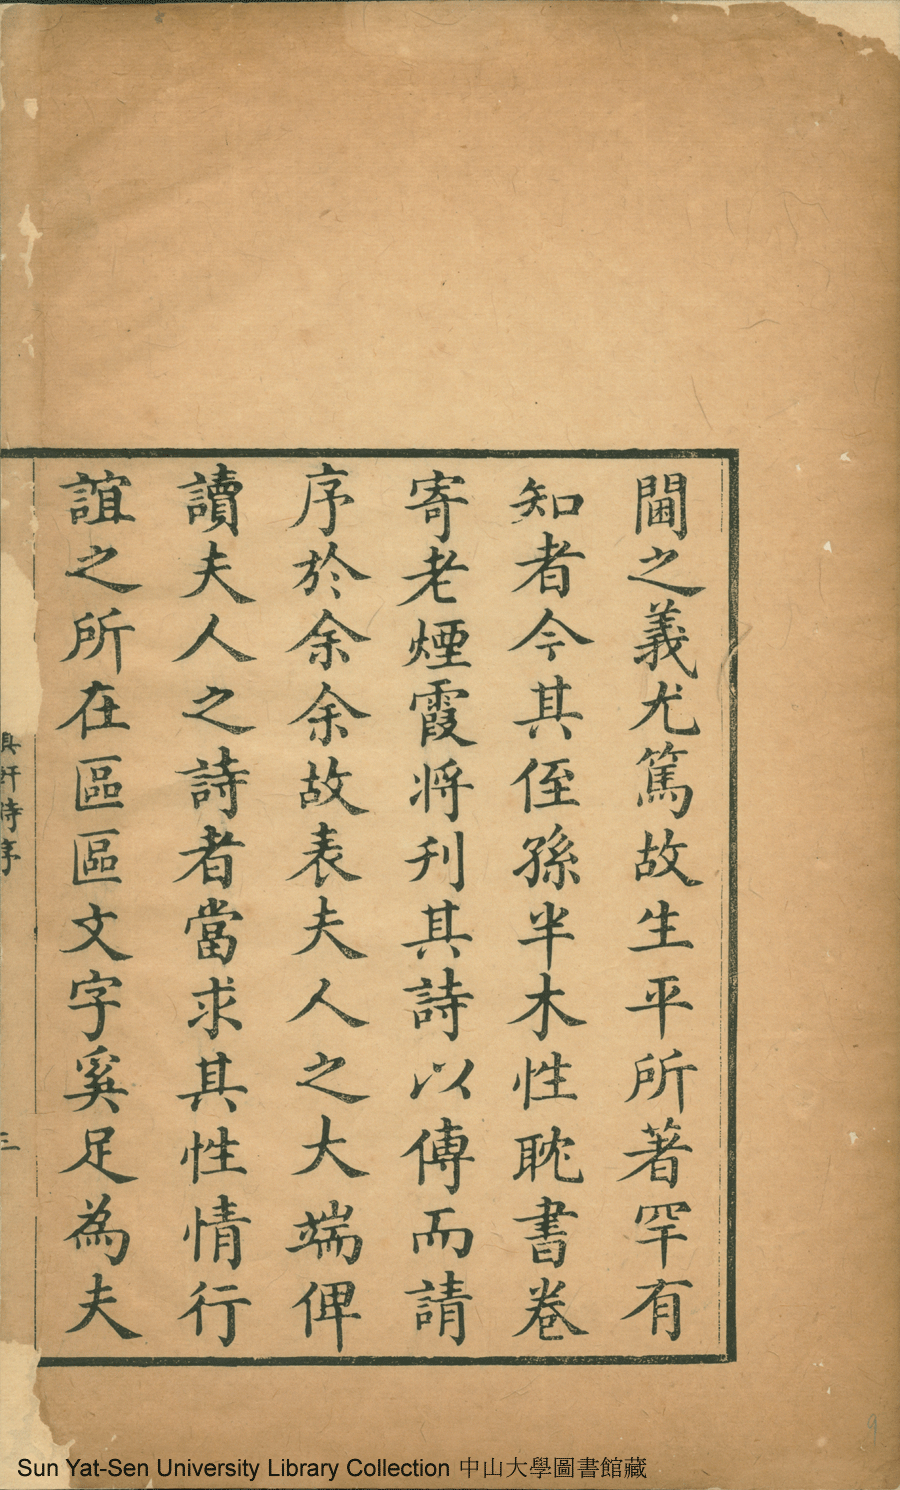 閫之義尤篤故生平所著罕有
知者今其侄孫半木性耽書卷
寄老煙霞將刋其詩以傳而請
序於余余故表夫人之大端俾
讀夫人之詩者當求其性情行
誼之所在區區文字奚足為夫
軒詩序
三
Sun Yat-Sen University Library Collection 中山大學圖書館藏